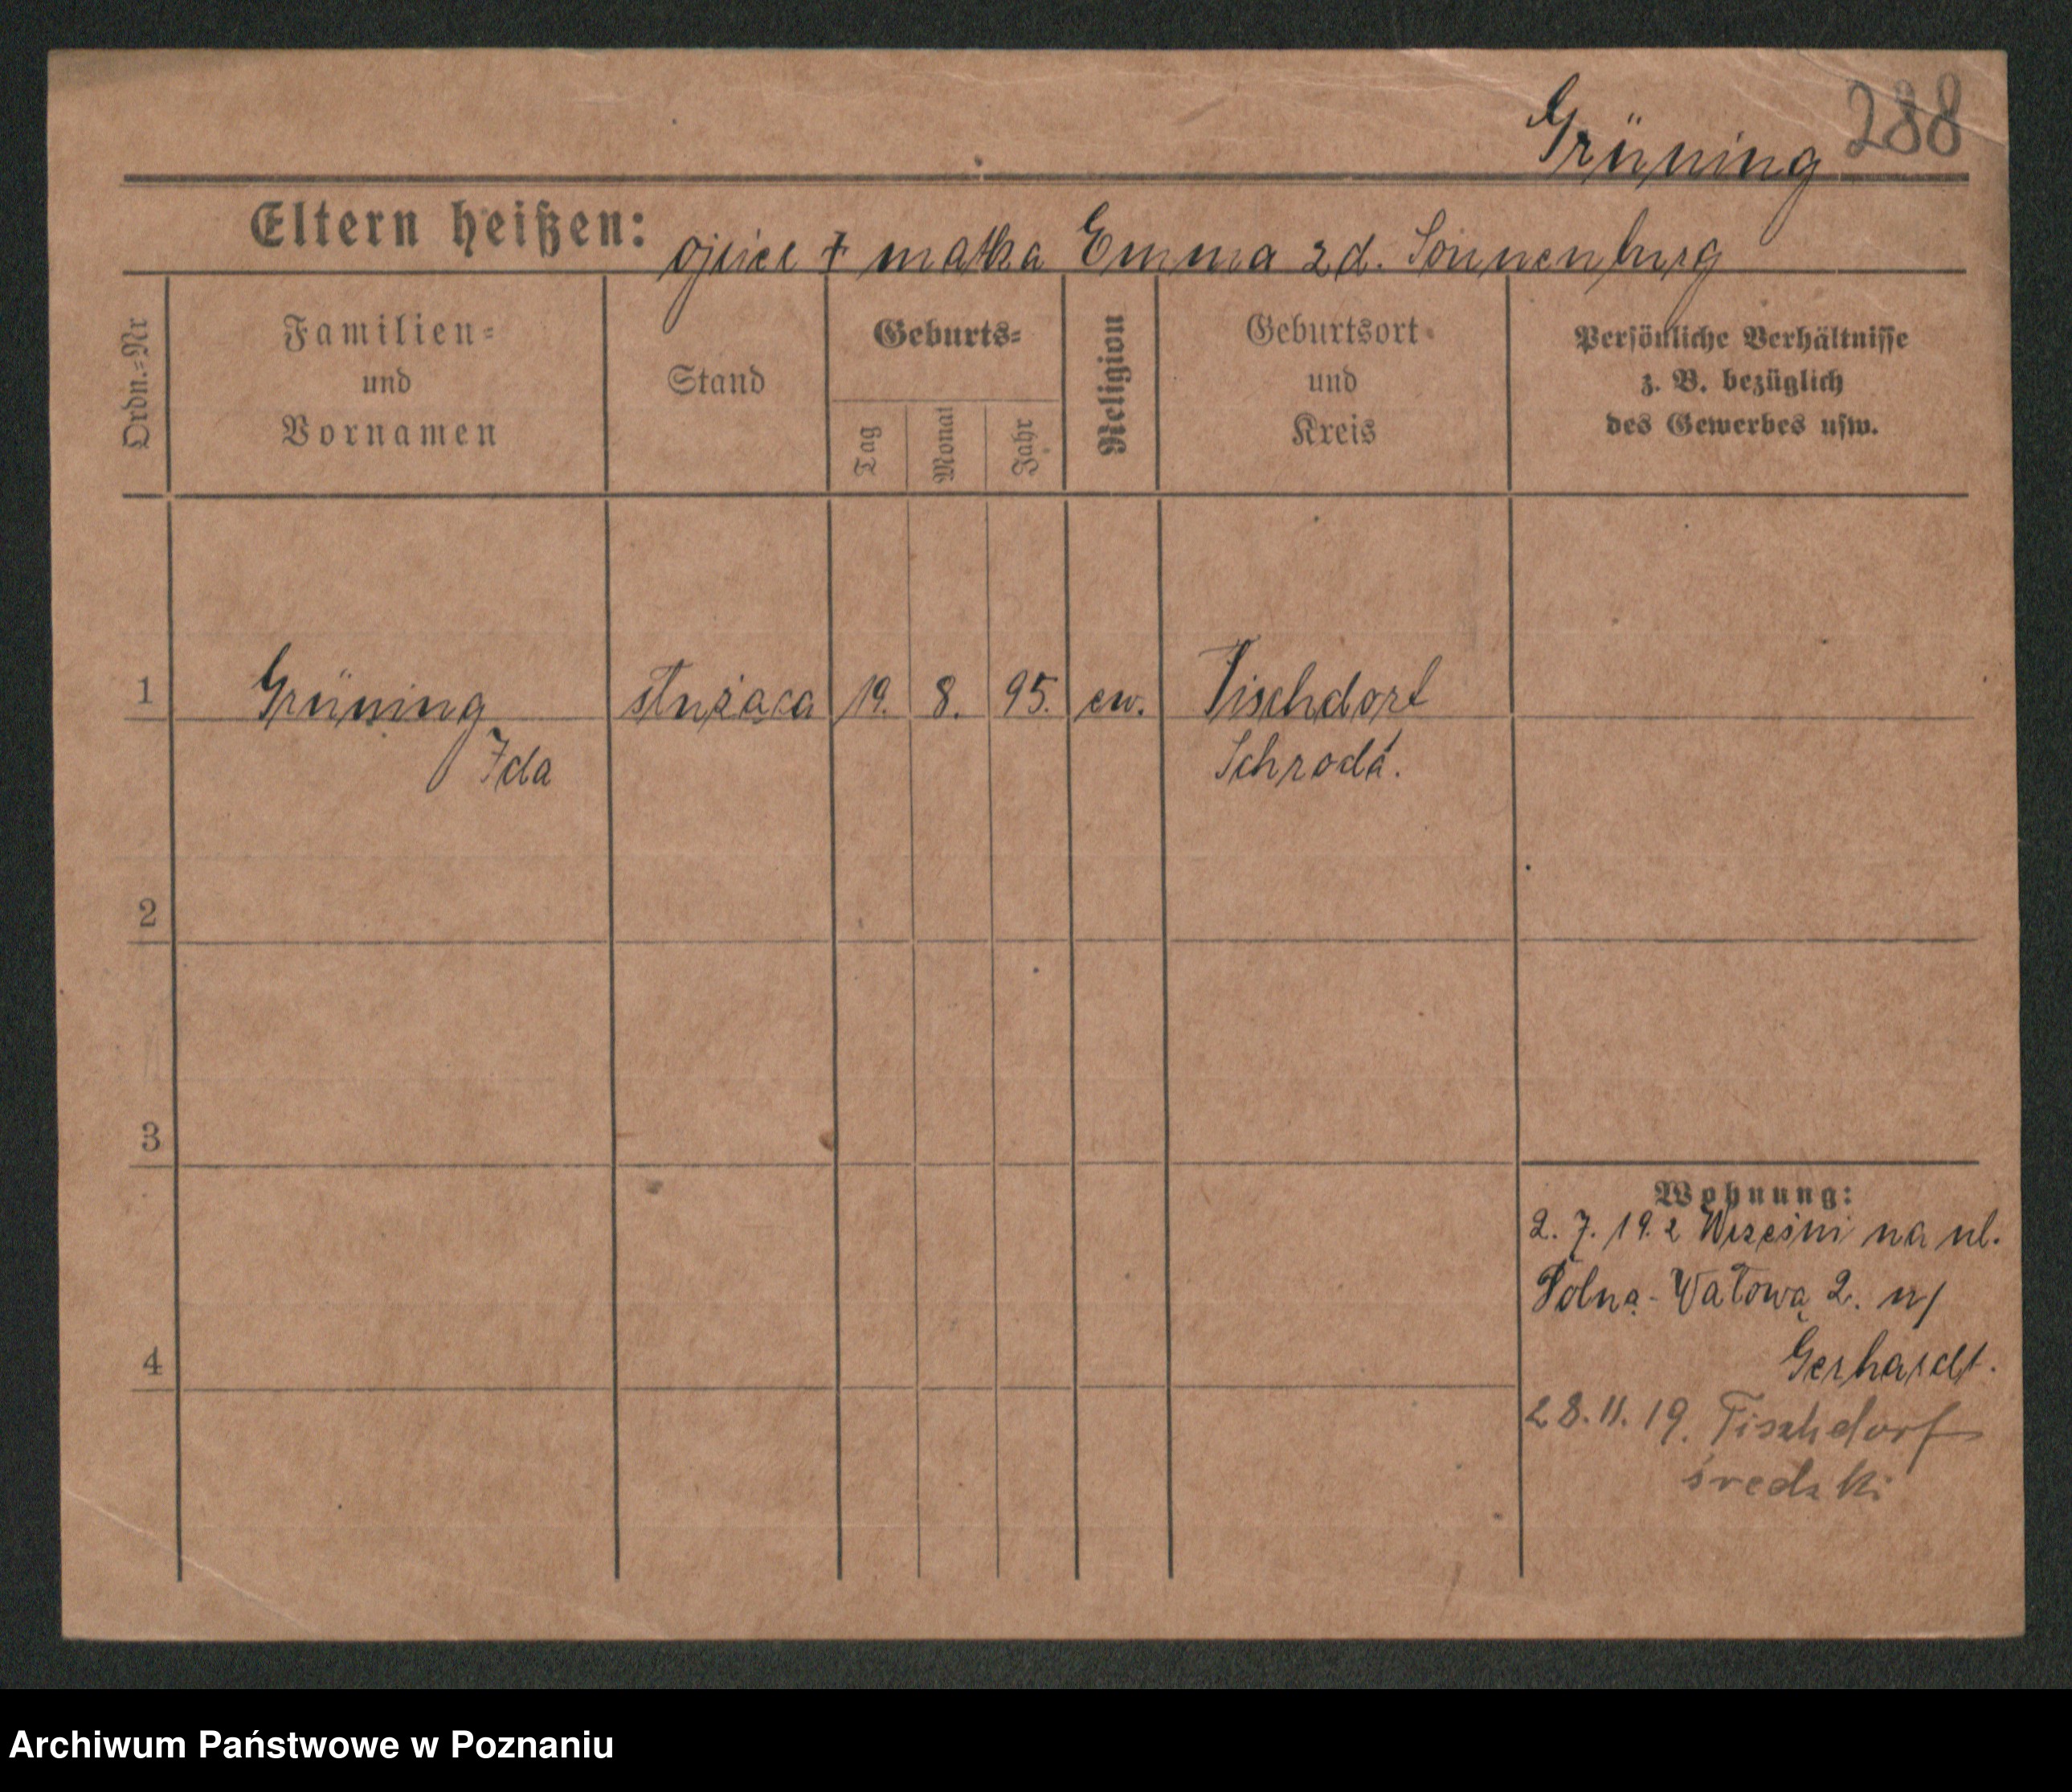 Grüning 288
Eltern heißen: ojciec † matka Emma zd. Sonnenburg
Ordn.=Nr
Familien=
und
Vornamen
Stand
Geburts=
Tag
Monat
Jahr
Religion
Geburtsort
und
Kreis
Persönliche Verhältnisse
z. B. bezüglich
des Gewerbes usw.
1 Grüning służąca 19. 8. 95. ew. Tischdorf
Ida Schroda.
2
3
Wohnung:
2. 7. 19. z Wrześni na ul.
Polną-Wałową 2. u/
Gerhardt.
4
28.11.19. Tischdorf
średzki
Archiwum Państwowe w Poznaniu